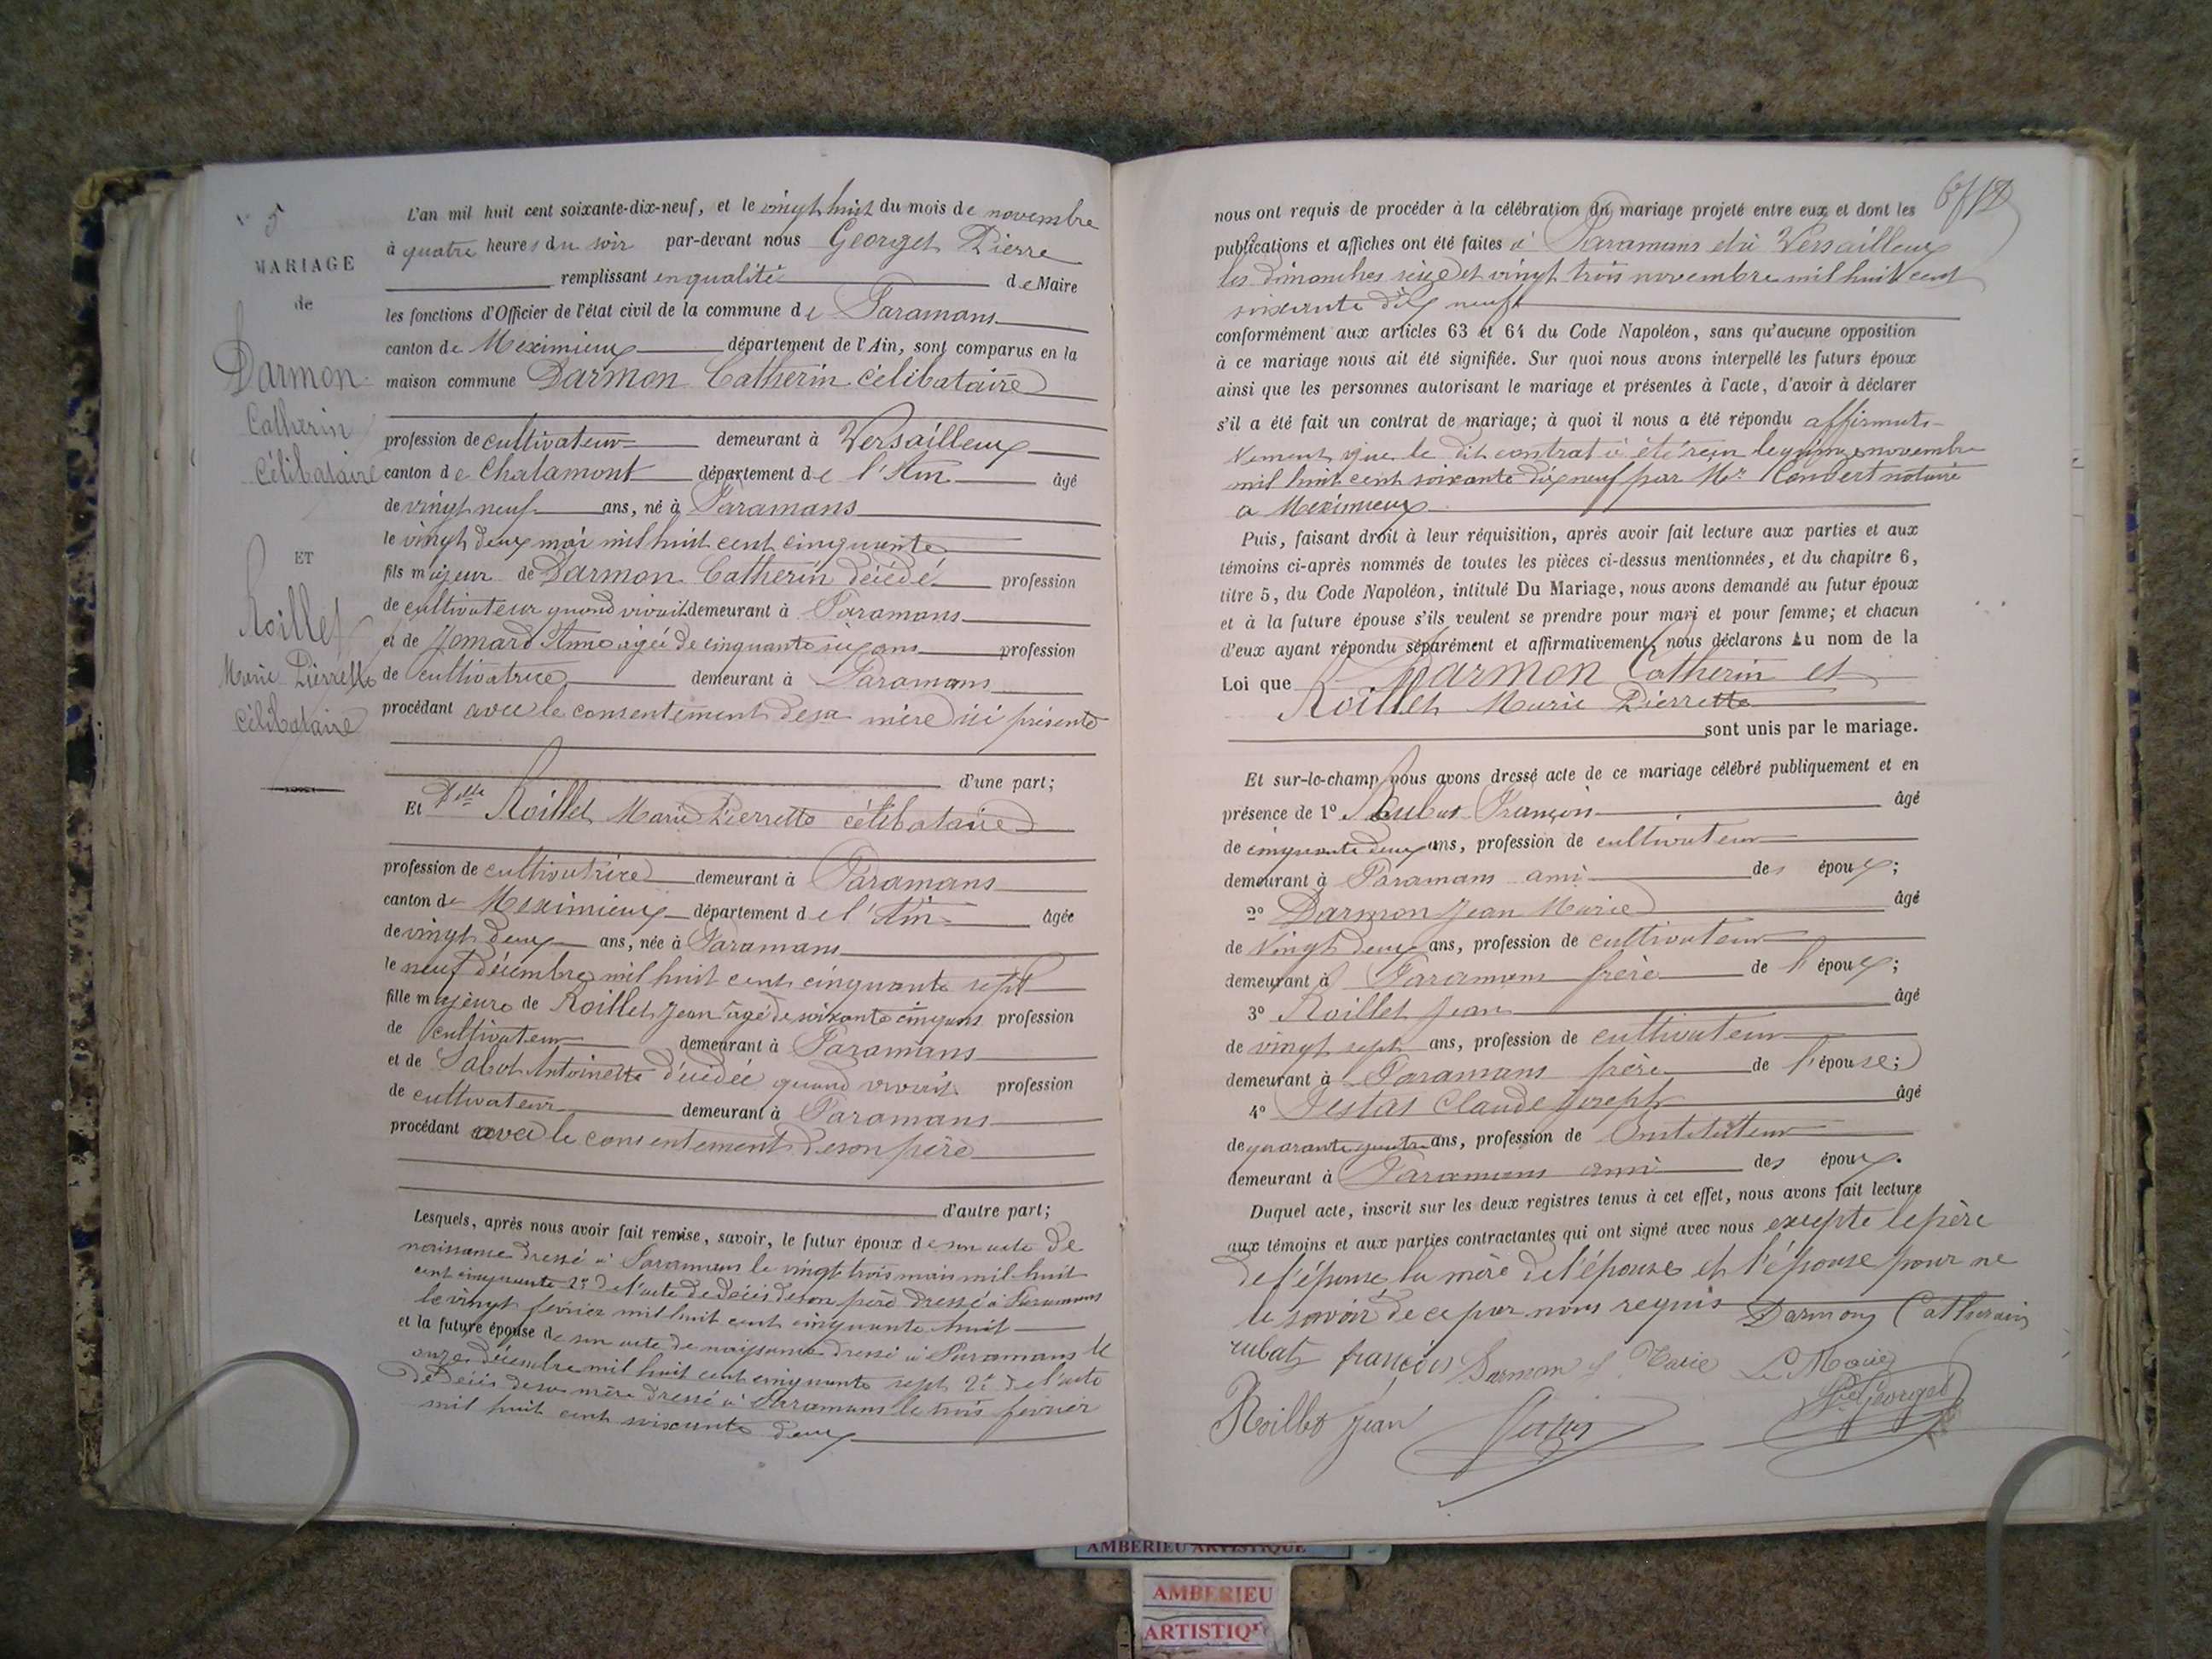 5
MARIAGE
de
Darmon
Catherin
célibataire
ET
Roillet
Marie Pierrette
célibataire
L'an mil huit cent soixante-dix-neuf, et le vingt huit du mois de novembre
à quatre heures du soir par-devant nous Georget Pierre
remplissant en qualité de Maire
les fonctions d'Officier de l'état civil de la commune de Faramans
canton de Meximieux département de l'Ain, sont comparus en la
maison commune Darmon Catherin célibataire
profession de cultivateur demeurant à Versailleux
canton de Chalamont département de l'Ain âgé
de vingt neuf ans, né à Faramans
le vingt deux mai mil huit cent cinquante
fils majeur de Darmon Catherin décédé profession
de cultivateur quand vivait demeurant à Faramans
et de Jomard Anne agée de cinquante six ans profession
de cultivatrice demeurant à Faramans
procédant avec le consentement de sa mère ici présente
d'une part;
Et Delle Roillet Marie Pierrette célibataire
profession de cultivatrice demeurant à Faramans
canton de Meximieux département de l'Ain âgée
de vingt deux ans, née à Faramans
le neuf décembre mil huit cent cinquante sept
fille majeure de Roillet Jean agé de soixante cinq ans profession
de cultivateur demeurant à Faramans
et de Sabot Antoinette décédée quand vivait profession
de cultivateur demeurant à Faramans
procédant avec le consentement de son père
d'autre part;
Lesquels, après nous avoir fait remise, savoir, le futur époux de son acte de
naissance dressé à Faramans le vingt trois mai mil huit
cent cinquante 2º de l'acte de décès de son père dressé à Faramans
le vingt février mil huit cent cinquante huit
et la future épouse de son acte de naissance dressé à Faramans le
onze décembre mil huit cent cinquante sept 2º de l'acte
de décès de sa mère dressé à Faramans le trois février
mil huit cent soixante deux
nous ont requis de procéder à la célébration du mariage projeté entre eux et dont les
publications et affiches ont été faites à Faramans et à Versailleux
les dimanches seize et vingt trois novembre mil huit cent
soixante dix neuf
conformément aux articles 63 et 64 du Code Napoléon, sans qu'aucune opposition
à ce mariage nous ait été signifiée. Sur quoi nous avons interpellé les futurs époux
ainsi que les personnes autorisant le mariage et présentes à l'acte, d'avoir à déclarer
s'il a été fait un contrat de mariage; à quoi il nous a été répondu affirmati-
vement que le dit contrat à été reçu le quinze novembre
mil huit cent soixante dix neuf par Mr Convert notaire
a Meximieux
Puis, faisant droit à leur réquisition, après avoir fait lecture aux parties et aux
témoins ci-après nommés de toutes les pièces ci-dessus mentionnées, et du chapitre 6,
titre 5, du Code Napoléon, intitulé Du Mariage, nous avons demandé au futur époux
et à la future épouse s'ils veulent se prendre pour mari et pour femme; et chacun
d'eux ayant répondu séparément et affirmativement, nous déclarons Au nom de la
Loi que Darmon Catherin et
Roillet Marie Pierrette
sont unis par le mariage.
Et sur-le-champ nous avons dressé acte de ce mariage célébré publiquement et en
présence de 1º Rubat François âgé
de cinquante deux ans, profession de cultivateur
demeurant à Faramans ami des époux;
2º Darmon Jean Marie âgé
de vingt deux ans, profession de cultivateur
demeurant à Faramans frère de l'époux;
3º Roillet Jean âgé
de vingt sept ans, profession de cultivateur
demeurant à Faramans frère de l'épouse;
4º Jestas Claude Joseph âgé
de quarante quatre ans, profession de Instituteur
demeurant à Faramans ami des époux.
Duquel acte, inscrit sur les deux registres tenus à cet effet, nous avons fait lecture
aux témoins et aux parties contractantes qui ont signé avec nous excepté le père
de l'épouse la mère de l'épouse et l'épouse pour ne
le savoir de ce par nous requis Darmon Catherain
rubat françois Darmon J Marie Le Maire
Roillet jean Pre Georget
AMBERIEU ARTISTIQUE
AMBERIEU
ARTISTIQ